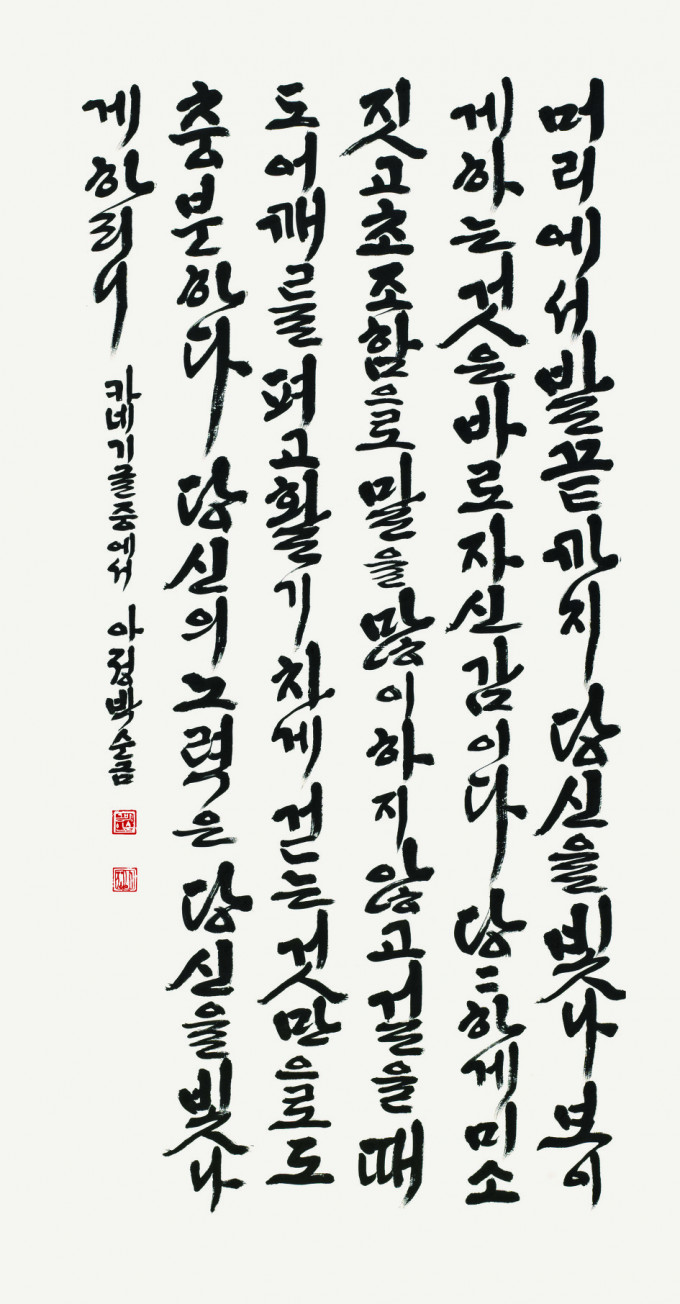 머리에서발끝까지 당신을빛나 보이
게하는것은바로자신감이다 당〻하게미소
짓고초조함으로말을많이하지않고걸을때
도어깨를펴고활기차게걷는것만으로도
충분하다 당신의노력은당신을빛나
게하리이
카네기글중에서 아정박순콤